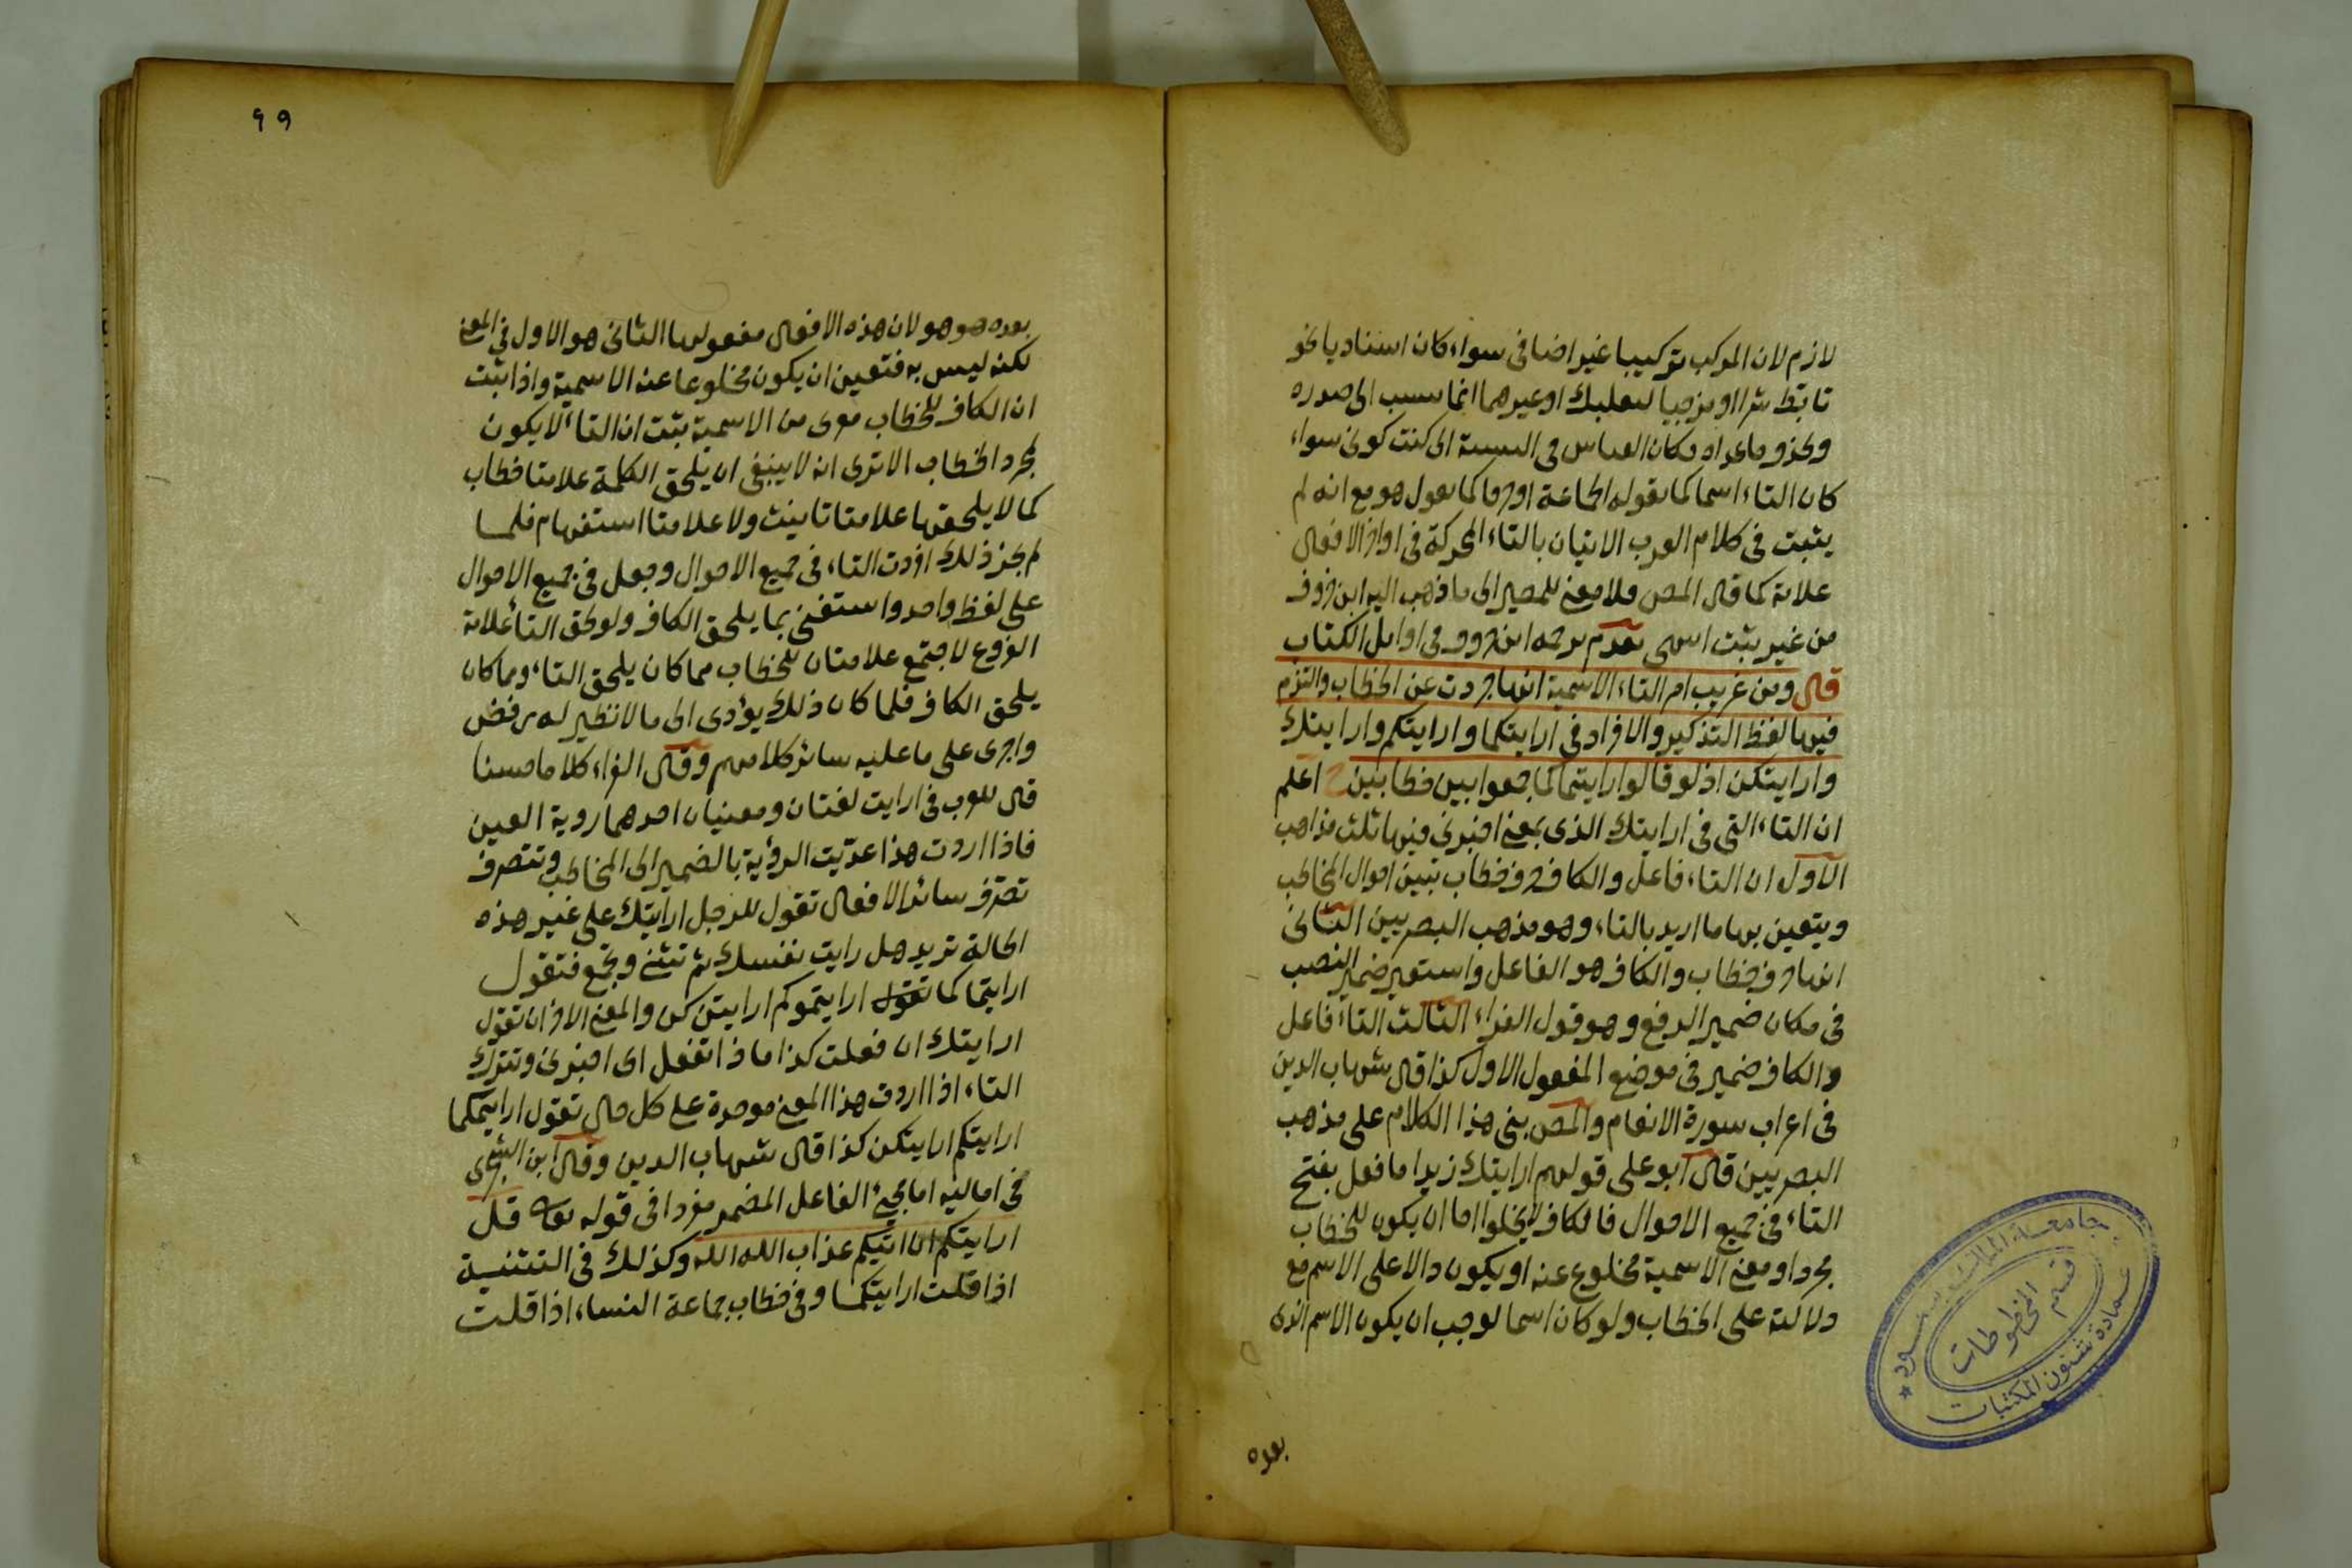 لازم لان المركب تركيبا غير اضافى سواء كان اسناديا نحو
تابط شرا او مزجيا لبعلبك او غيرهما انما ينسب الى صدره
ويحذف ما عداه فكان القياس فى النسبة الى كنت كونى سواء
كان التاء اسما كما يقوله الجماعة او حرفا كما يقول هو مع انه لم
يثبت فى كلام العرب الاتيان بالتاء المحركة فى اواخر الافعال
علامة كما قال المص فلا معنى للمصير الى ما ذهب اليه ابن خروف
من غير ثبت انتهى تقدم ترجمة ابن خروف فى اوايل الكتاب
قال ومن غريب امر التاء الاسمية انها جردت عن الخطاب والتزم
فيها لفظ التذكير والافراد فى ارايتكما وارايتكم وارايتك
وارايتكن اذ لو قالوا ارايتماكما جمعوا بين خطابين اعلم
ان التاء التى فى ارايتك الذى بمعنى اخبرنى فيها ثلث مذاهب
الاول ان التاء فاعل والكاف حرف خطاب تبين احوال المخاطب
ويتعين بها ما اريد بالتاء وهو مذهب البصريين الثانى
انها حرف خطاب والكاف هو الفاعل واستعير ضمير النصب
فى مكان ضمير الرفع وهو قول الفراء الثالث التاء فاعل
والكاف ضمير فى موضع المفعول الاول كذا قال شهاب الدين
فى اعراب سورة الانعام والمص بنى هذا الكلام على مذهب
البصريين قال ابو على قولهم ارايتك زيدا ما فعل بفتح
التاء فى جميع الاحوال فالكاف لايخلوا اما ان يكون للخطاب
مجردا ومعنى الاسمية مخلوع عنه او يكون دالا على الاسم مع
دلالته على الخطاب ولو كان اسما لوجب ان يكون الاسم الذى
بعده
جامعة الملك سعود
قسم المخطوطات
عمادة شئون المكتبات
٩٩
بعده هو هو لان هذه الافعال مفعولها الثانى هو الاول فى المعنى
لكنه ليس به فتعين ان يكون مخلوعا عنه الاسمية واذا ثبت
ان الكاف للخطاب معرى من الاسمية ثبت ان التاء لا يكون
لمجرد الخطاب الا ترى انه لا ينبغى ان يلحق الكلمة علامتا خطاب
كما لا يلحقها علامتا تانيث ولا علامتا استفهام فلما
لم يجز ذلك افردت التاء فى جميع الاحوال وجعل فى جميع الاحوال
على لفظ واحد واستغنى بما يلحق الكاف ولو لحق التاء علامة
الفروع لاجتمع علامتان للخطاب مما كان يلحق التاء وما كان
يلحق الكاف فلما كان ذلك يؤدى الى ما لا نظير له رفض
واجرى على ما عليه سائر كلامهم وقال الفراء كلاما حسنا
قال للعرب فى ارايت لغتان ومعنيان احدهما روية العين
فاذا اردت هذا عدّيت الرؤية بالضمير الى المخاطب وتتصرف
تصرف سائر الافعال تقول للرجل ارايتك على غير هذه
الحالة تريد هل رايت نفسك ثم تثنى وتجمع فتقول
ارايتما كما تقول ارايتموكم ارايتن كن والمعنى الاخر ان تقول
ارايتك ان فعلت كذا ماذا تفعل اى اخبرنى وتترك
التاء اذا اردت هذا المعنى موحدة على كل حال تقول ارايتكما
ارايتكم ارايتكن كذا قال شهاب الدين وقال ابن الشجرى
فى اماليه اما مجىء الفاعل المضمر مفردا فى قوله تعالى قل
ارايتكم ان اتيكم عذاب الله الله وكذلك فى التثنية
اذا قلت ارايتكما وفى خطاب جماعة النساء اذا قلت